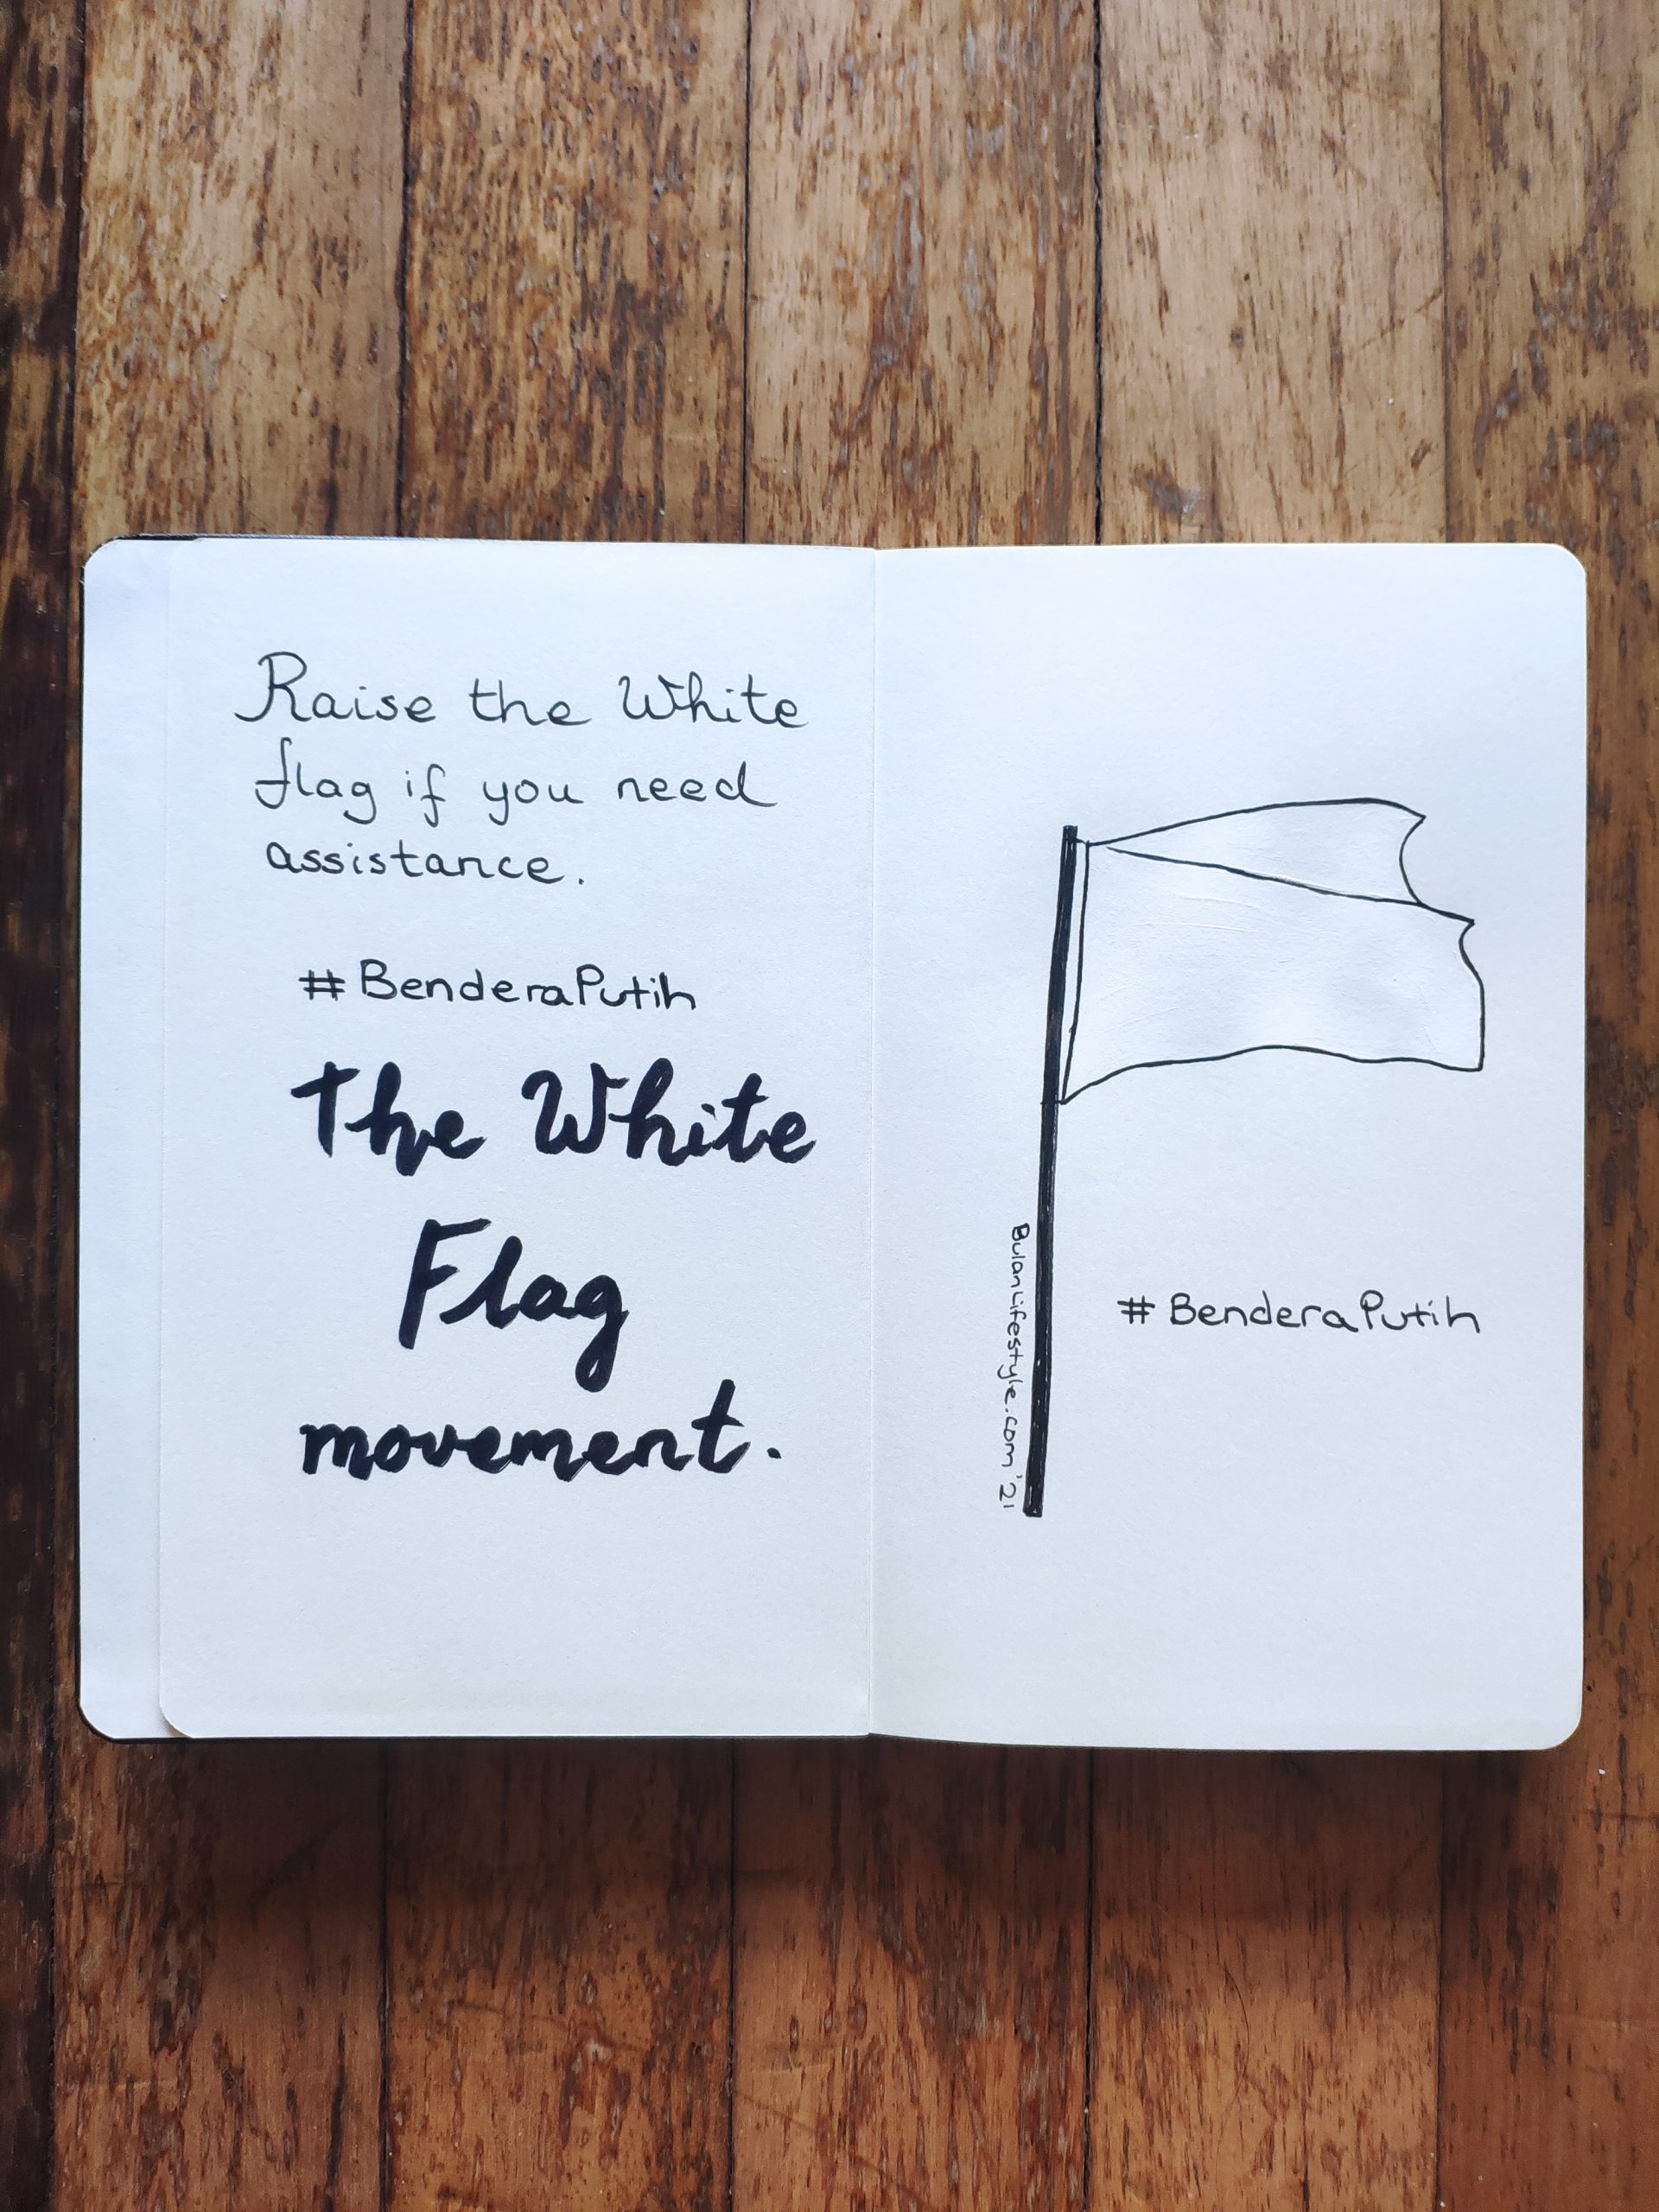 Raise the White
flag if you need
assistance.
#BenderaPutih
The White
Flag
movement.
BulanLifestyle.com '21
#BenderaPutih